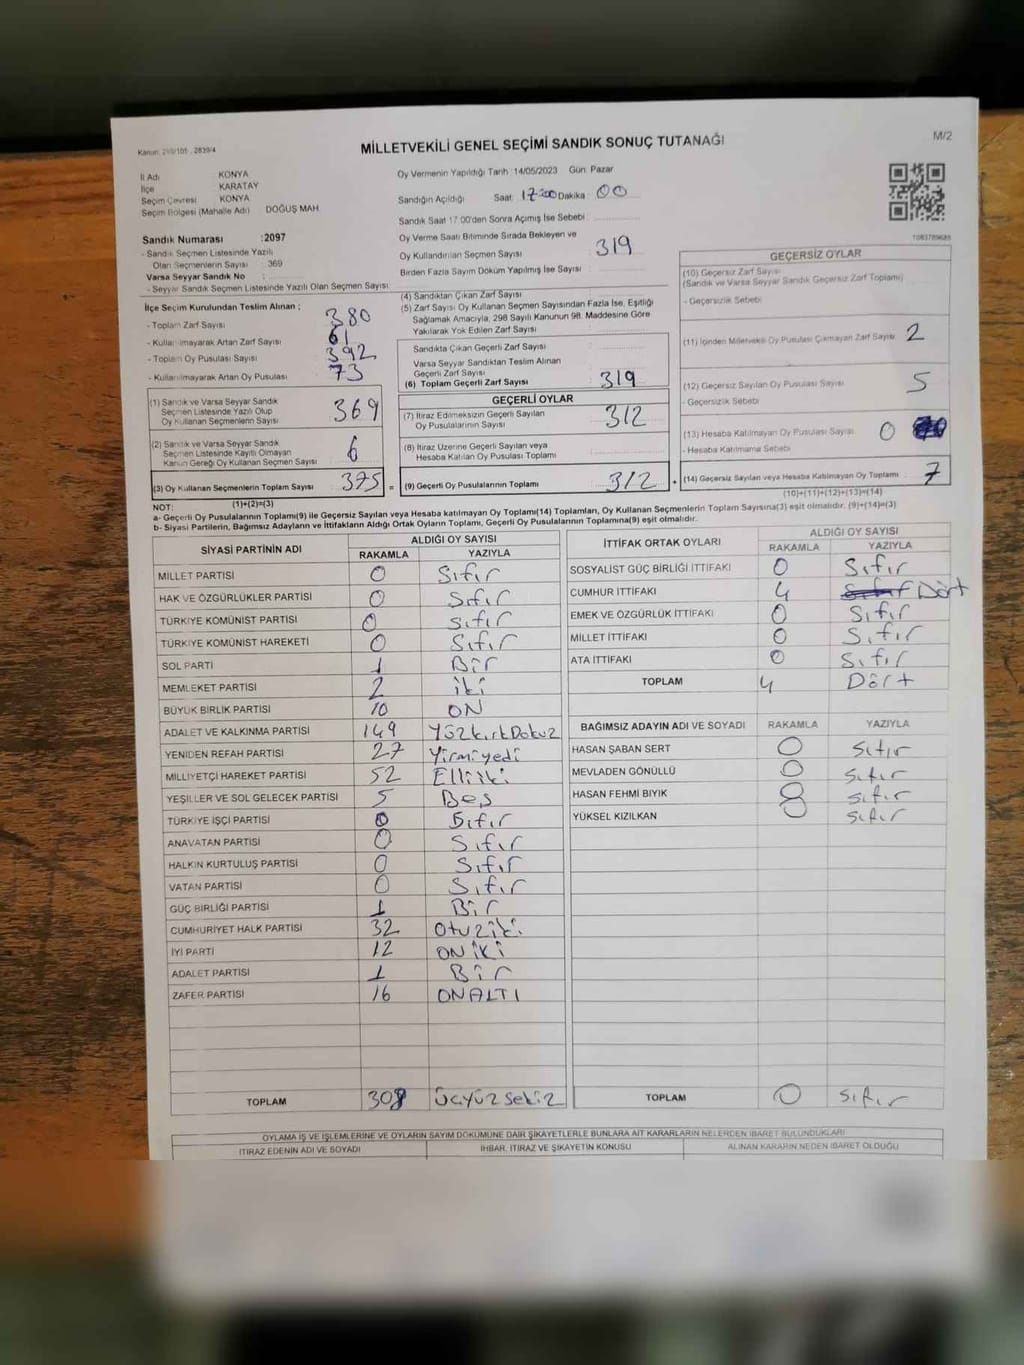 Kanun: 298/105 , 2839/4
MİLLETVEKİLİ GENEL SEÇİMİ SANDIK SONUÇ TUTANAĞI
M/2
İl Adı : KONYA
İlçe : KARATAY
Seçim Çevresi : KONYA
Seçim Bölgesi (Mahalle Adı) DOĞUŞ MAH
Oy Vermenin Yapıldığı Tarih 14/05/2023 Gün: Pazar
Sandığın Açıldığı Saat: 17:00 Dakika : 00
Sandık Saat 17:00'den Sonra Açımış İse Sebebi :
Oy Verme Saati Bitiminde Sırada Bekleyen ve
Oy Kullandırılan Seçmen Sayısı : 319
Birden Fazla Sayım Döküm Yapılmış İse Sayısı :
Sandık Numarası :2097
- Sandık Seçmen Listesinde Yazılı
Olan Seçmenlerin Sayısı : 369
Varsa Seyyar Sandık No :
- Seyyar Sandık Seçmen Listesinde Yazılı Olan Seçmen Sayısı:
İlçe Seçim Kurulundan Teslim Alınan ;
- Toplam Zarf Sayısı : 380
- Kullanılmayarak Artan Zarf Sayısı : 61
- Toplam Oy Pusulası Sayısı : 392
- Kullanılmayarak Artan Oy Pusulası : 73
(1) Sandık ve Varsa Seyyar Sandık
Seçmen Listesinde Yazılı Olup
Oy Kullanan Seçmenlerin Sayısı : 369
(2) Sandık ve Varsa Seyyar Sandık
Seçmen Listesinde Kayıtlı Olmayan
Kanun Gereği Oy Kullanan Seçmen Sayısı : 6
(3) Oy Kullanan Seçmenlerin Toplam Sayısı : 375
(1)+(2)=(3)
(4) Sandıktan Çıkan Zarf Sayısı :
(5) Zarf Sayısı Oy Kullanan Seçmen Sayısından Fazla İse, Eşitliği
Sağlamak Amacıyla, 298 Sayılı Kanunun 98. Maddesine Göre
Yakılarak Yok Edilen Zarf Sayısı :
Sandıkta Çıkan Geçerli Zarf Sayısı :
Varsa Seyyar Sandıktan Teslim Alınan
Geçerli Zarf Sayısı :
(6) Toplam Geçerli Zarf Sayısı : 319
GEÇERLİ OYLAR
(7) İtiraz Edilmeksizin Geçerli Sayılan
Oy Pusulalarının Sayısı : 312
(8) İtiraz Üzerine Geçerli Sayılan veya
Hesaba Katılan Oy Pusulası Toplamı :
= (9) Geçerli Oy Pusulalarının Toplamı : 312
GEÇERSİZ OYLAR
(10) Geçersiz Zarf Sayısı
(Sandık ve Varsa Seyyar Sandık Geçersiz Zarf Toplamı)
- Geçersizlik Sebebi :
(11) İçinden Milletvekili Oy Pusulası Çıkmayan Zarf Sayısı : 2
(12) Geçersiz Sayılan Oy Pusulası Sayısı : 5
- Geçersizlik Sebebi :
(13) Hesaba Katılmayan Oy Pusulası Sayısı : 0
- Hesaba Katılmama Sebebi :
+ (14) Geçersiz Sayılan veya Hesaba Katılmayan Oy Toplamı : 7
(10)+(11)+(12)+(13)=(14)
NOT:
a- Geçerli Oy Pusulalarının Toplamı(9) ile Geçersiz Sayılan veya Hesaba katılmayan Oy Toplam(14) Toplamları, Oy Kullanan Seçmenlerin Toplam Sayısına(3) eşit olmalıdır. (9)+(14)=(3)
b- Siyasi Partilerin, Bağımsız Adayların ve İttifakların Aldığı Ortak Oyların Toplamı, Geçerli Oy Pusulalarının Toplamına(9) eşit olmalıdır.
SİYASİ PARTİNİN ADI ALDIĞI OY SAYISI
RAKAMLA YAZIYLA
MİLLET PARTİSİ 0 Sıfır
HAK VE ÖZGÜRLÜKLER PARTİSİ 0 Sıfır
TÜRKİYE KOMÜNİST PARTİSİ 0 Sıfır
TÜRKİYE KOMÜNİST HAREKETİ 0 Sıfır
SOL PARTİ 1 Bir
MEMLEKET PARTİSİ 2 iki
BÜYÜK BİRLİK PARTİSİ 10 ON
ADALET VE KALKINMA PARTİSİ 149 YüzkırkDokuz
YENİDEN REFAH PARTİSİ 27 Yirmiyedi
MİLLİYETÇİ HAREKET PARTİSİ 52 Elliiki
YEŞİLLER VE SOL GELECEK PARTİSİ 5 Beş
TÜRKİYE İŞÇİ PARTİSİ 0 Sıfır
ANAVATAN PARTİSİ 0 Sıfır
HALKIN KURTULUŞ PARTİSİ 0 Sıfır
VATAN PARTİSİ 0 Sıfır
GÜÇ BİRLİĞİ PARTİSİ 1 Bir
CUMHURİYET HALK PARTİSİ 32 Otuziki
İYİ PARTİ 12 ON iKi
ADALET PARTİSİ 1 Bir
ZAFER PARTİSİ 16 ONALTI
TOPLAM 308 Üçyüzsekiz
İTTİFAK ORTAK OYLARI ALDIĞI OY SAYISI
RAKAMLA YAZIYLA
SOSYALİST GÜÇ BİRLİĞİ İTTİFAKI 0 Sıfır
CUMHUR İTTİFAKI 4 Dört
EMEK VE ÖZGÜRLÜK İTTİFAKI 0 Sıfır
MİLLET İTTİFAKI 0 Sıfır
ATA İTTİFAKI 0 Sıfır
TOPLAM 4 Dört
BAĞIMSIZ ADAYIN ADI VE SOYADI RAKAMLA YAZIYLA
HASAN ŞABAN SERT 0 Sıfır
MEVLADEN GÖNÜLLÜ 0 Sıfır
HASAN FEHMİ BIYIK 0 Sıfır
YÜKSEL KIZILKAN 0 Sıfır
TOPLAM 0 Sıfır
OYLAMA İŞ VE İŞLEMLERİNE VE OYLARIN SAYIM DÖKÜMÜNE DAİR ŞİKAYETLERLE BUNLARA AİT KARARLARIN NELERDEN İBARET BULUNDUKLARI
İTİRAZ EDENİN ADI VE SOYADI İHBAR, İTİRAZ VE ŞİKAYETİN KONUSU ALINAN KARARIN NEDEN İBARET OLDUĞU